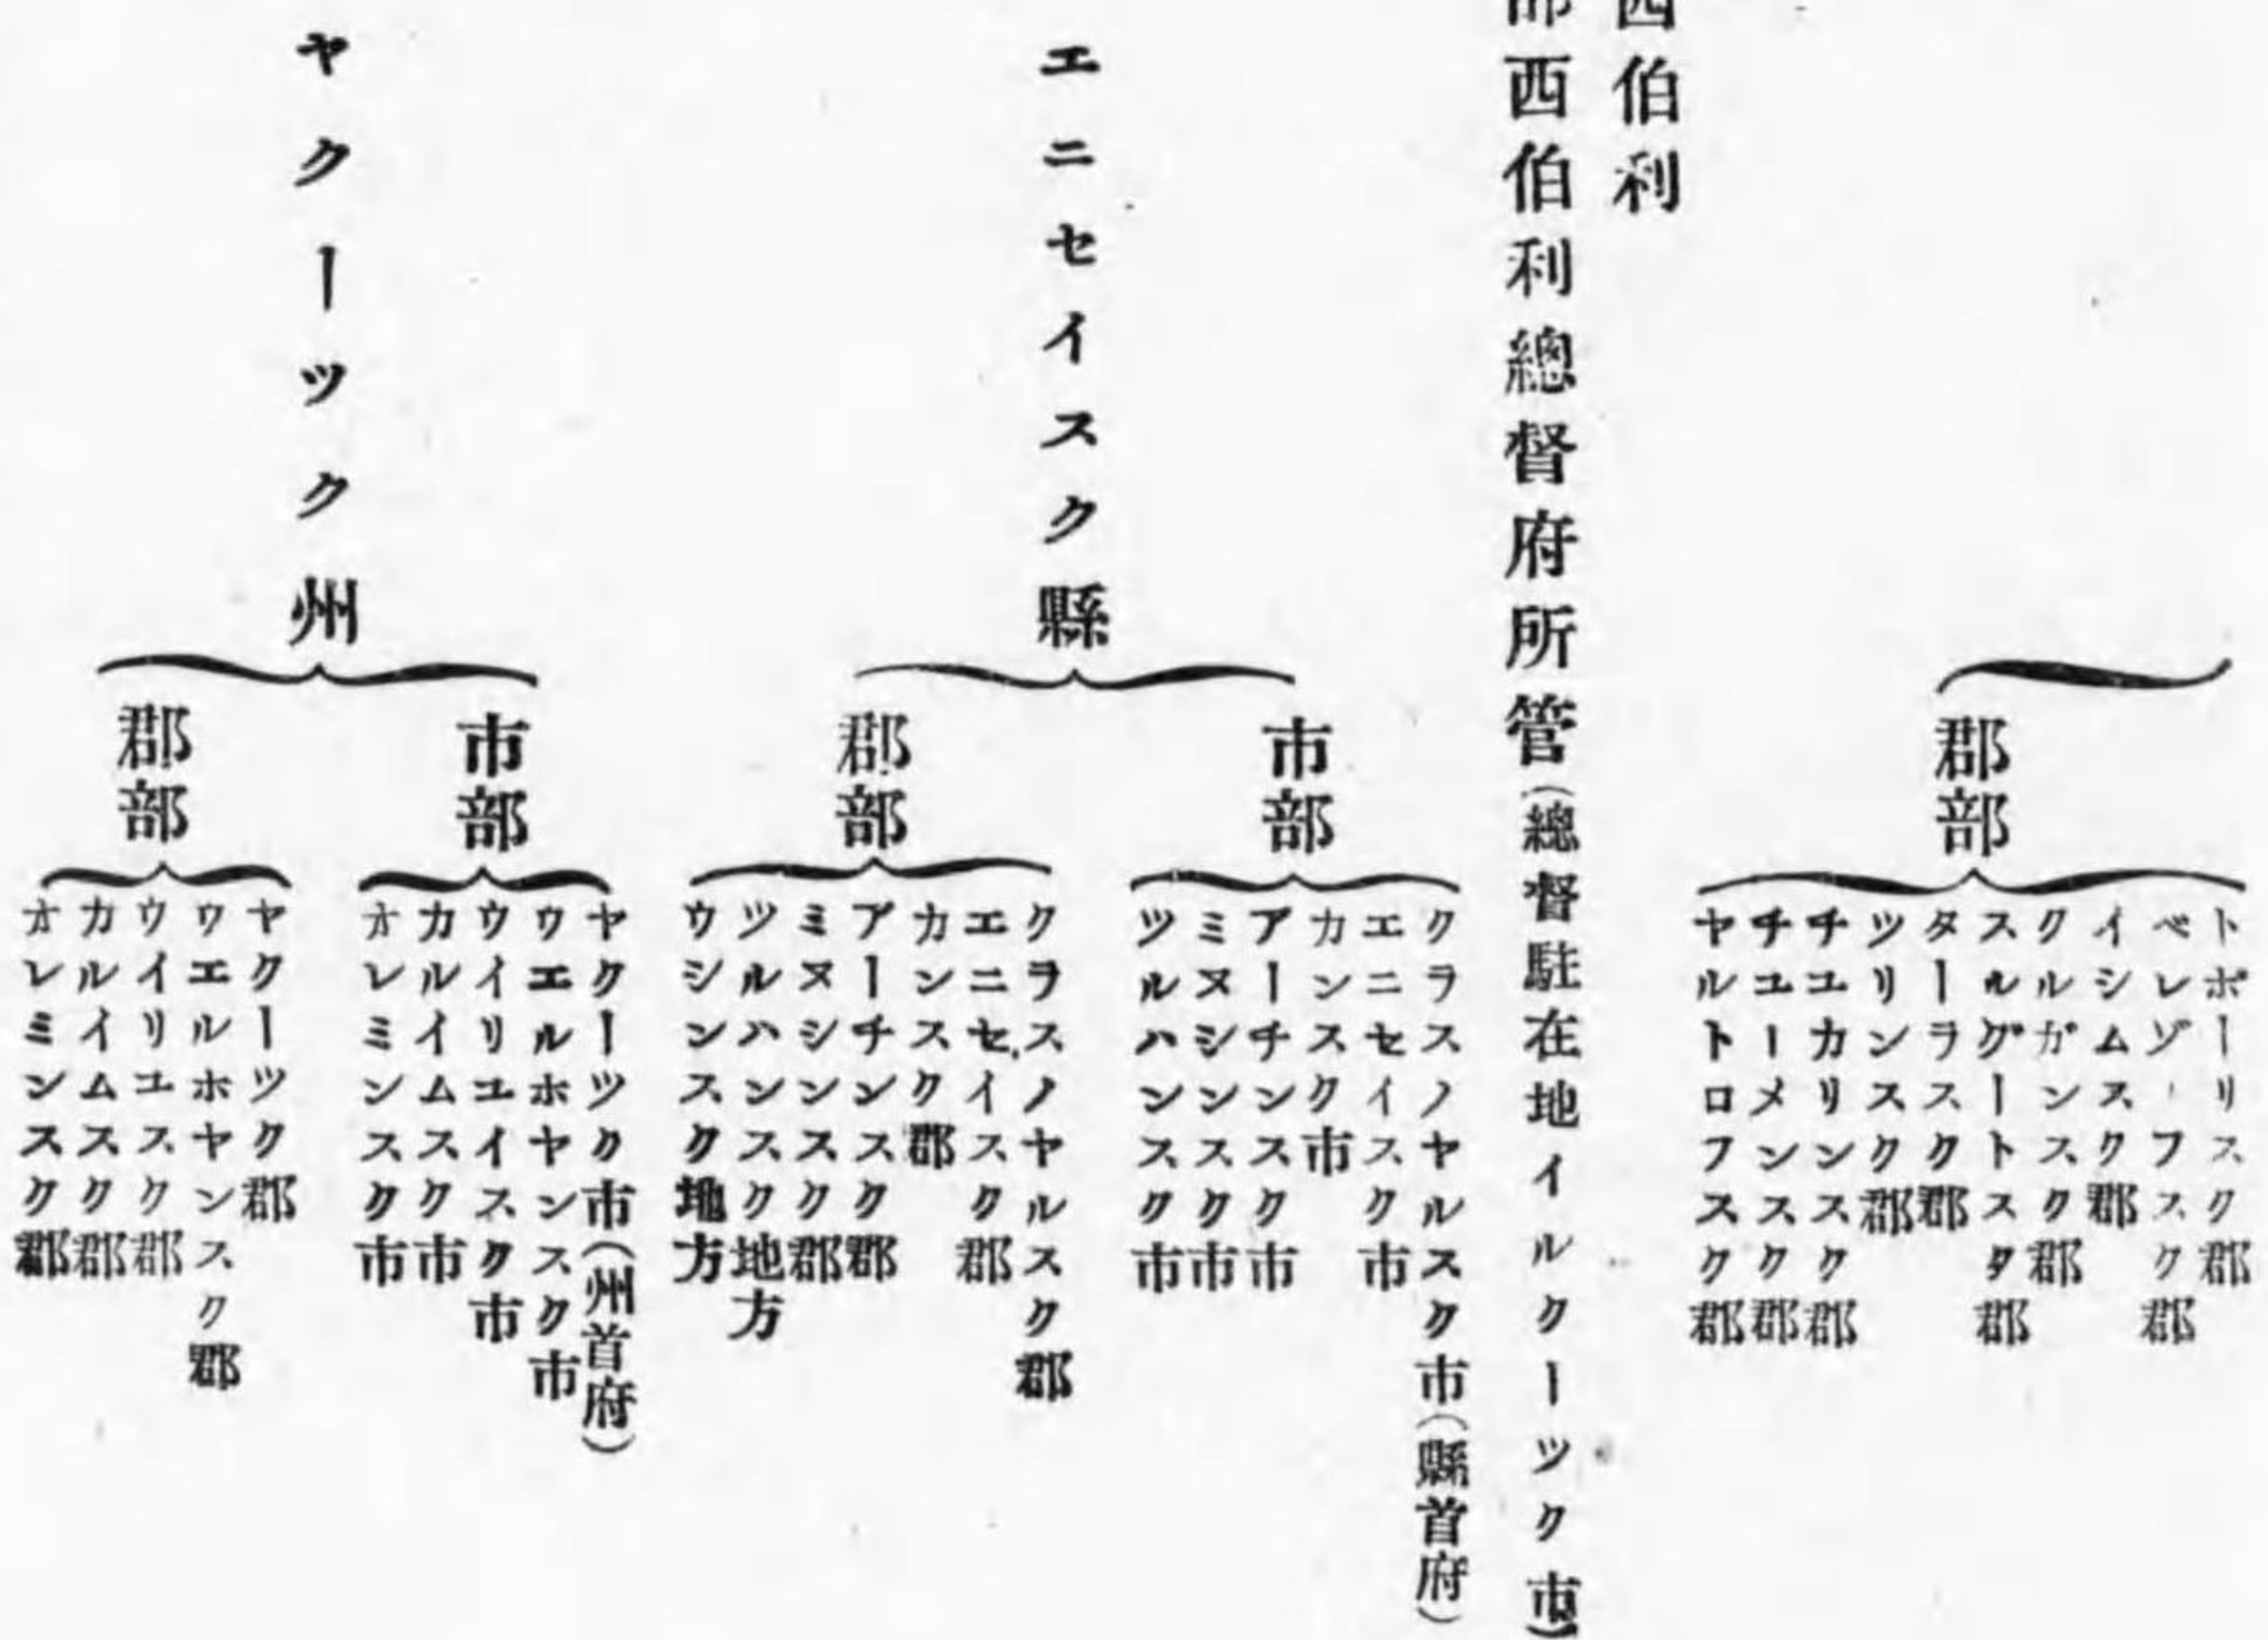 郡部
トポーリスク郡
ベレゾーフスク郡
イシムスク郡
クルガンスク郡
スルグートスタ郡
ターラスク郡
ツリンスク郡
チユカリンスク郡
チユーメンスク郡
ヤルトロフスク郡
西伯利
部西伯利總督府所管(總督駐在地イルクーツク市)
エニセイスク縣
市部
クラスノヤルスク市(縣首府)
エニセイスク市
カンスク市
アーチンスク市
ミヌシンスク市
ツルハンスク市
郡部
クラスノヤルスク郡
エニセイスク郡
カンスク郡
アーチンスク郡
ミヌシンスク郡
ツルハンスク地方
ウシンスク地方
ヤクーツク州
市部
ヤクーツク市(州首府)
ウエルホヤンスク市
ウイリユイスク市
カルイムスク市
オレミンスク市
郡部
ヤクーツク郡
ウエルホヤンスク郡
ウイリユスク郡
カルイムスク郡
オレミンスク郡